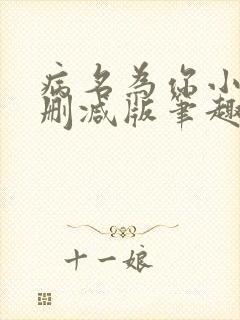 病名为你小
删减版笔趣
十一娘